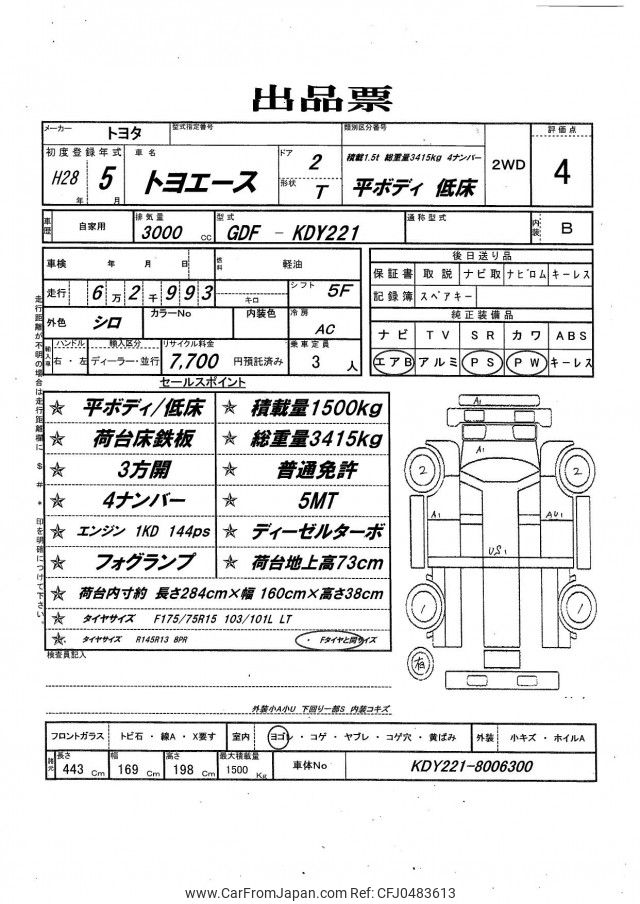 出品票
メーカー トヨタ 型式指定番号 類別区分番号 評価点
初度登録年式 車名 ドア 2 積載1.5t 総重量3415kg 4ナンバー 2WD 4
H28 年 5 月 トヨエース 形状 T 平ボディ 低床
車歴 自家用 排気量 3000 cc 型式 GDF - KDY221 通称型式 内装 B
車検 年 月 日 燃料 軽油
走行 6万2千993 キロ シフト 5F
外色 シロ カラーNo 内装色 冷房 AC
輸入車 ハンドル 右・左 輸入区分 ディーラー・並行 リサイクル料金 7,700 円預託済み 乗車定員 3 人
後日送り品
保証書 取説 ナビ取 ナビロム キーレス
記録簿 スペアキー
純正装備品
ナビ TV SR カワ ABS
エアB アルミ PS PW キーレス
走行距離が不明の場合は走行距離欄に $ # * 印を明確につけて下さい。
セールスポイント
☆ 平ボディ/低床 ☆ 積載量1500kg
☆ 荷台床鉄板 ☆ 総重量3415kg
☆ 3方開 ☆ 普通免許
☆ 4ナンバー ☆ 5MT
☆ エンジン 1KD 144ps ☆ ディーゼルターボ
☆ フォグランプ ☆ 荷台地上高73cm
☆ 荷台内寸約 長さ284cm×幅 160cm×高さ38cm
☆ タイヤサイズ F175/75R15 103/101L LT
☆ タイヤサイズ R145R13 8PR ・ Fタイヤと同サイズ
A1
A1
2
2
A1
AU1
US1
1
1
有
検査員記入
外装小A小U 下回り一部S 内装コキズ
フロントガラス トビ石・線A・X要す 室内 ヨゴレ・コゲ・ヤブレ・コゲ穴・黄ばみ 外装 小キズ・ホイルA
諸元 長さ 443 Cm 幅 169 Cm 高さ 198 Cm 最大積載量 1500 Kg 車体No KDY221-8006300
www.CarFromJapan.com Ref:CFJ00483613